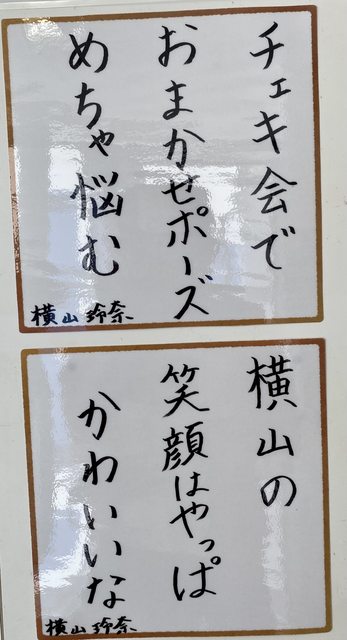 チェキ会で
おまかせポーズ
めちゃ悩む
横山玲奈
横山の
笑顔はやっぱ
かわいいな
横山玲奈